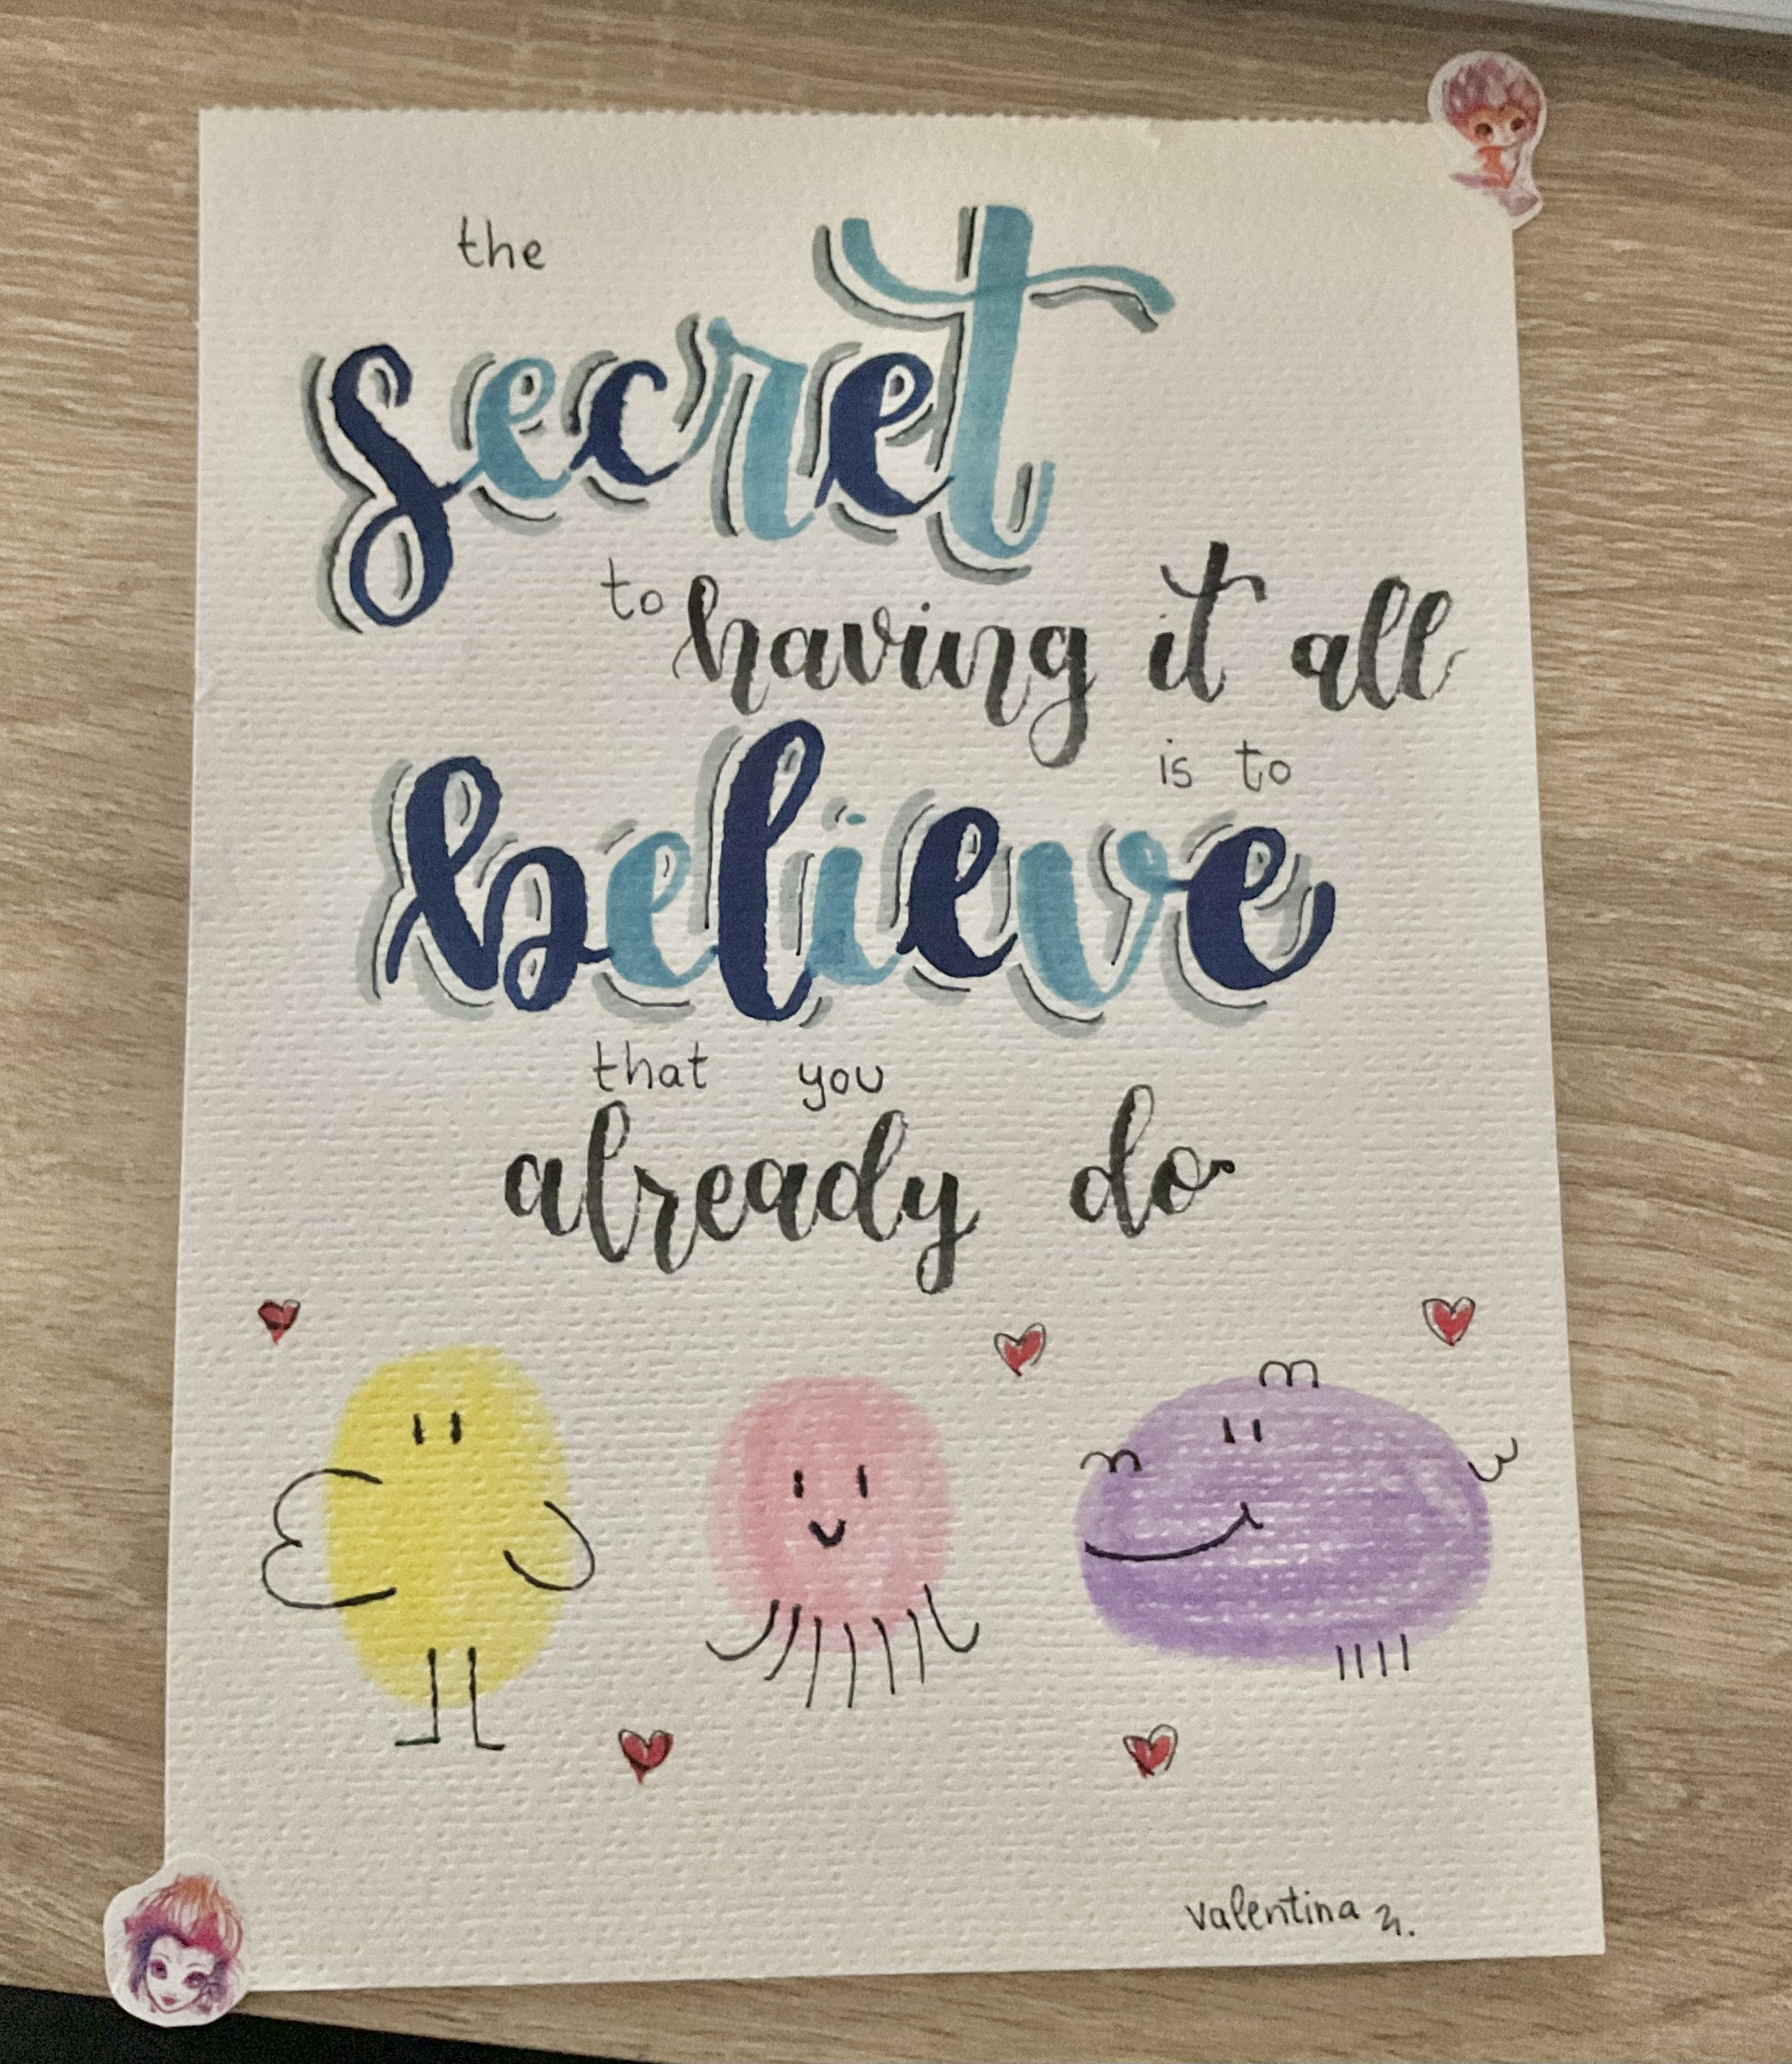 the
secret
to having it all
is to
believe
that you
already do
valentina